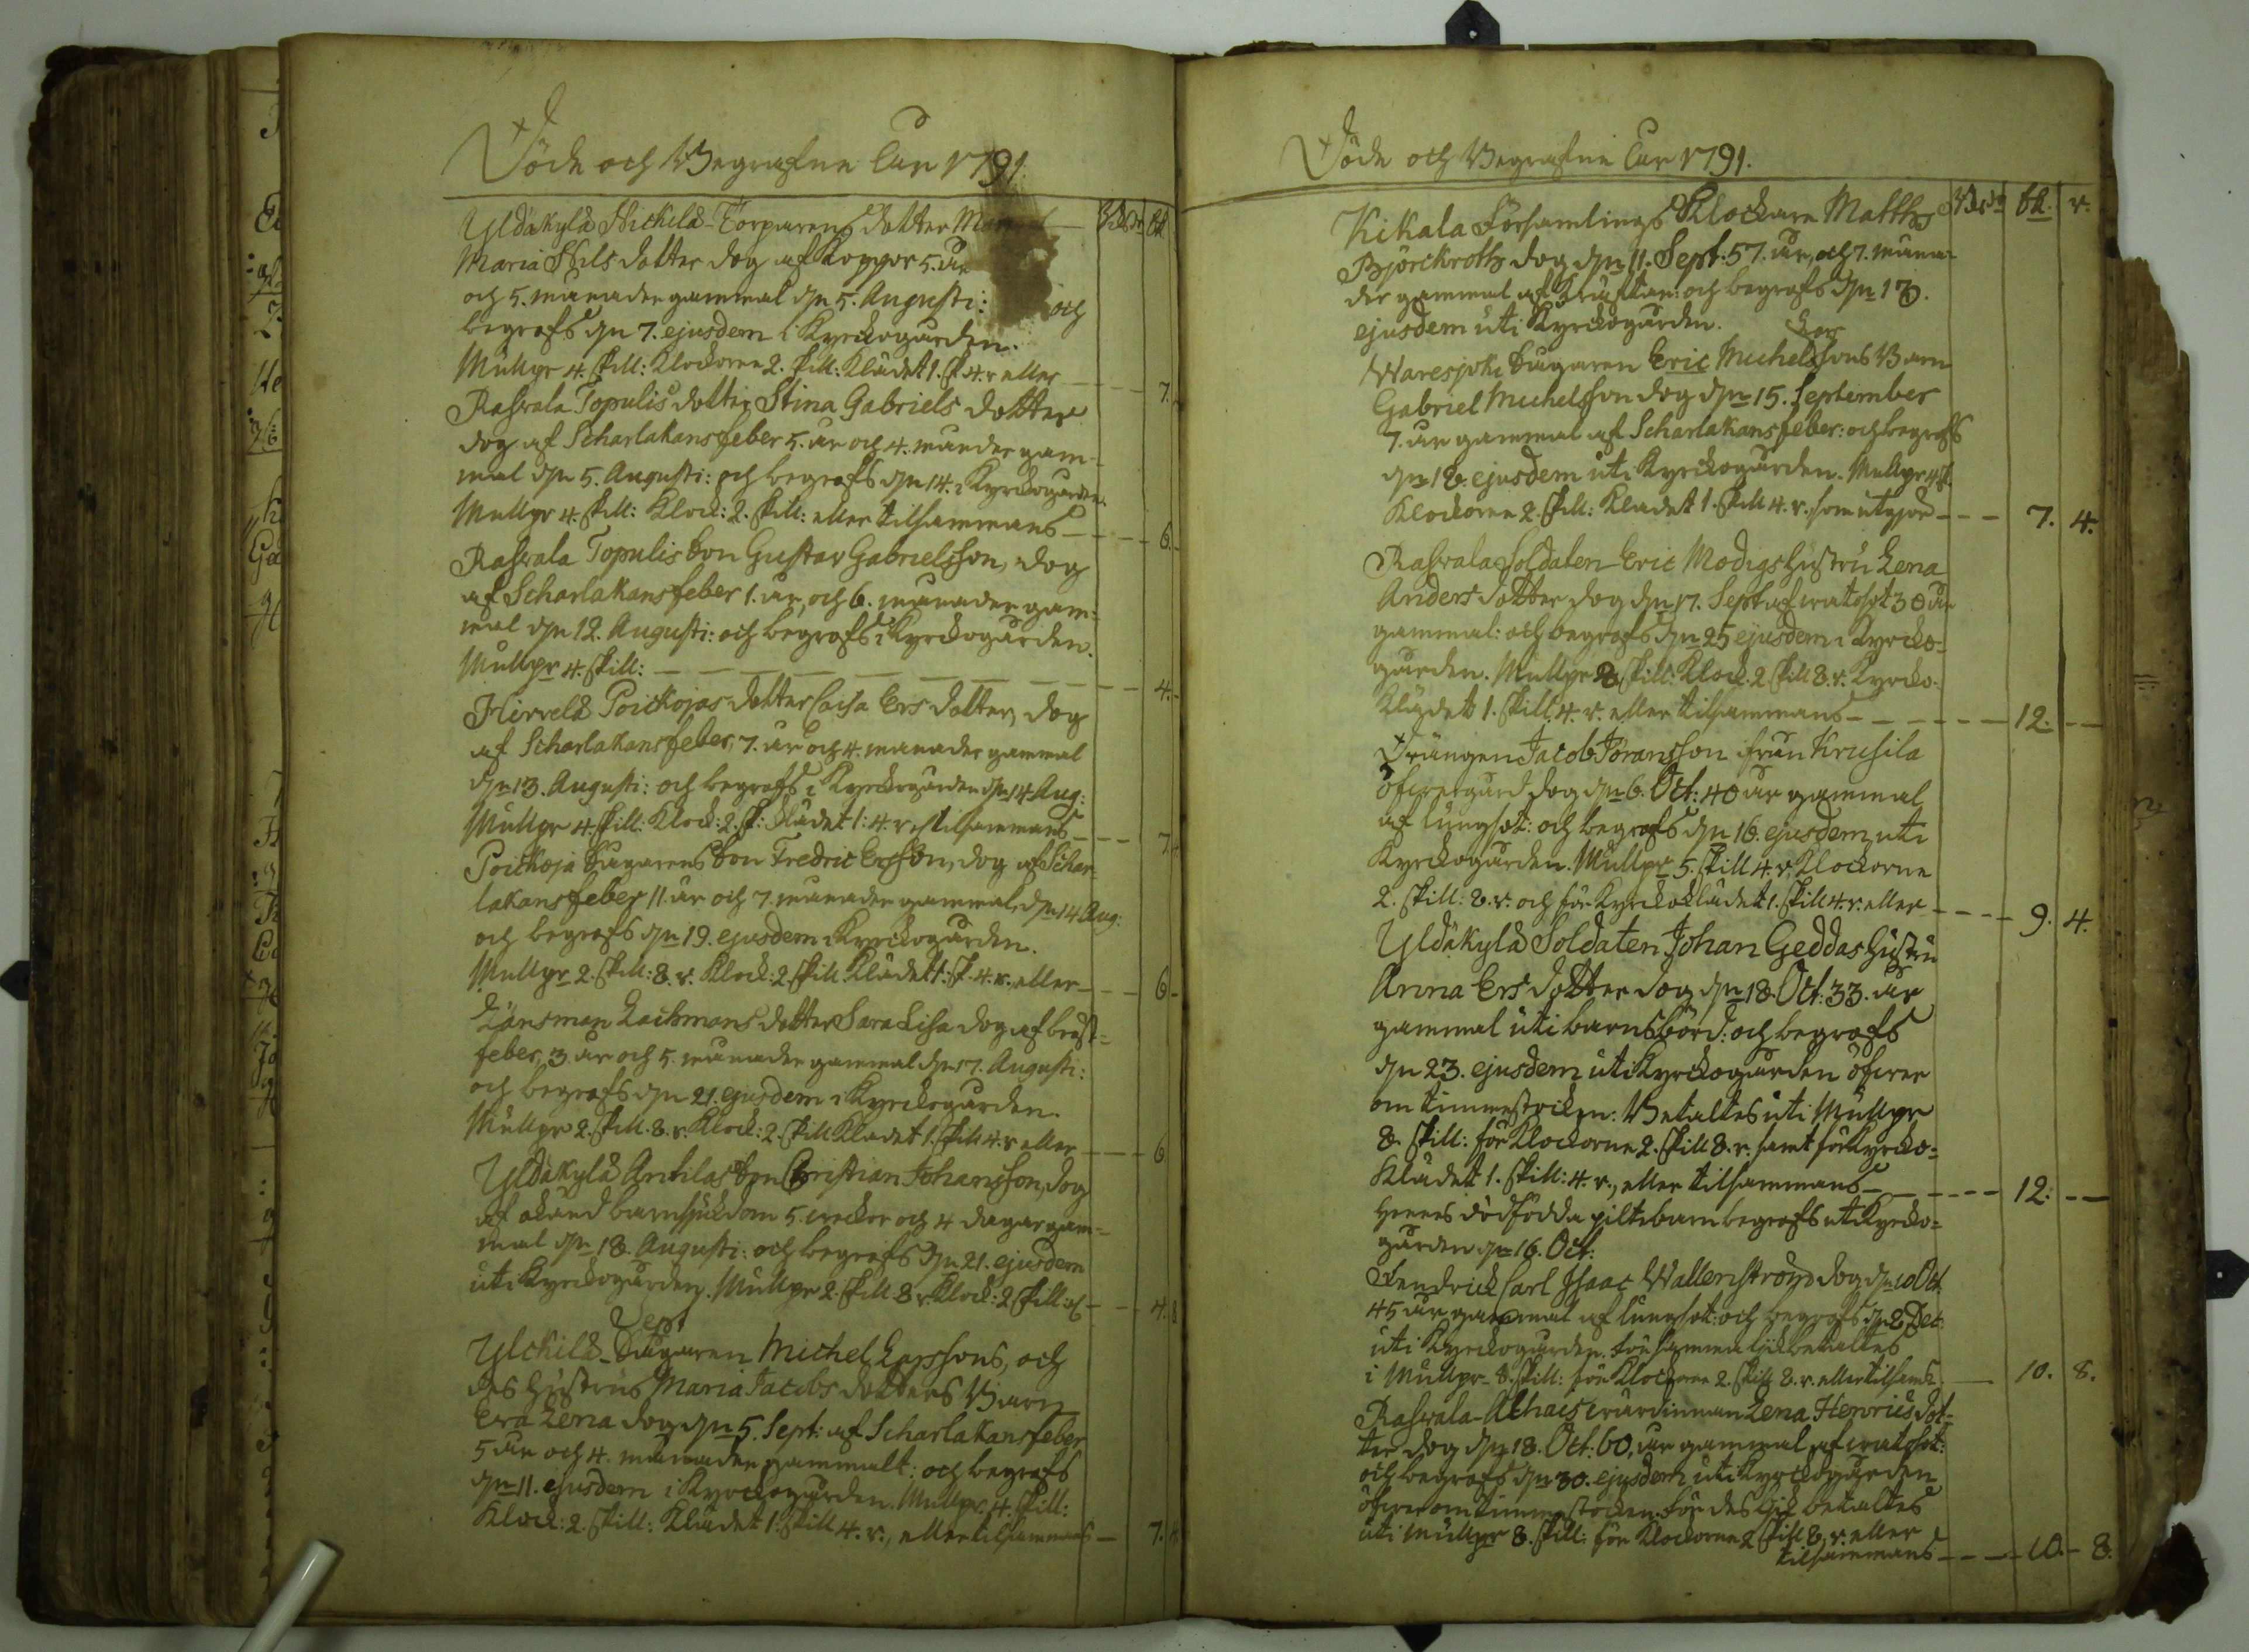 Döde och Begrafne Åhr 1791.
Rdr sk
Yldäkylä Nickilä-Torparens dotter
Maria Nils dotter dog af Koppor 5. år
och 5. månader gammal dn 5. Augusti: och
begrofs dn 7. ejusdem i Kyrckogården.
Mullpr 4. skill: Klockorne 2. skill: Klädet 1. sk 4. r eller 7.
Rahvala Topulis dotter Stina Gabriels dotter
dog af Scharlakansfeber 5. år och 4. månader gam-
mal dn 5. Augusti: och begrofs dn 14. i Kyrckogården.
Mullpr 4. skill: Klock: 2. skill: eller tilsammans 6.
Rahvala Topulis Son Gustav Gabrielsson, dog
af Scharlakansfeber 1. år, och 6. månader gam-
mal dn 12. Augusti: och begrofs i Kyrckogården.
Mullpr 4. skill: 4.
Hirvelä Poickojas dotter Caisa Ers dotter, dog
af Scharlakansfeber, 7. år och 4. månader gammal
dn 13. Augusti: och begrofs i Kyrckogården dn 14 Aug:
Mullpr 4. skill: Klock: 2. sk: klädet 1: 4. r tilsammans 7.
Poickoja Sågarens Son Fredric Ersson, dog af Schar-
lakansfeber 11. år och 7. månader gammal, dn 14 Aug:
och begrofs dn 19. ejusdem i Kyrckogården.
Mullpr 2. skill: 8. r. Klock: 2. skill Klädet 1: sk. 4. r., eller 6
Länsman Lachmans dotter Sara Lisa dog af bröst-
feber, 3. år och 5. månader gammal dn 17. Augusti:
och begrofs dn 21. ejusdem i Kyrckogården.
Mullpr 2. skill. 8. r. Klock: 2. skill Klädet 1. skill 4. r eller 6
Yldäkylä Antilas Son Christian Johansson, dog
af okänd barnsjukdom 5. veckor och 4 dagar gam-
mal dn 18. Augusti: och begrofs dn 21. ejusdem
uti Kyrckogården. Mullpr 2. skill 8 r. Klock: 2 skill: 4. 8
Sept
Ylckilä Sågaren Michel Larssons, och
des hustrus Maria Jacobs dotters Barn
Eva Lena dog dn 5. Sept: af Scharlakansfeber
5 år och 4. månader gammalt: och begrofs
dn 11. ejusdem i Kyrckogården. Mullpr 4. skill:
Klock: 2. skill: Klädet 1. skill 4. r., eller tilsammans 7.
Döde och Begrafne Åhr 1791.
Rdr sk. r.
Kikala Församlings Klockare Matths
Björckroth dog dn 11. Sept: 57. år, och 7. måna-
der gammal af Kräftan: och begrofs dn 18.
ejusdem uti Kyrckogården.
Waresjoki Sågaren Eric Michelssons Barn
Gabriel Michelsson dog dn 15. September
7. år gammal af Scharlakansfeber: och begrofs
dn 18. ejusdem uti Kyrckogården. Mullpr 4 sk
Klockorne 2. skill: Klädet 1. skill 4. r., som utgjör 7. 4.
Rahvala Soldaten Eric Modigs hustru Lena
Anders dotter dog dn 17. Sept af vatsot 30 år
gammal: och begrofs dn 25 ejusdem i Kyrcko-
gården. Mullpr 8 skill: Klock 2 skill 8. r. Kyrcko-
klädet 1. skill. 4. r. eller tilsammans 12.
Drängen Jacob Jöransson ifrån Krusila
öfvergård dog dn 6. Oct: 40 år gammal
af lungsot: och begrofs dn 16. ejusdem uti
Kyrckogården. Mullpr 5. skill 4. r. Klockorne
2. skill: 8. r. och för Kyrckoklädet 1. skill 4. r. eller 9. 4.
Yldäkylä Soldaten Johan Geddas hustru
Anna Ers dotter dog dn 18. Oct: 33. år
gammal uti barnsbörd: och begrofs
dn 23. ejusdem uti Kyrckogården öfver
om timmerstocken: Betaltes uti Mullpr
8. skill: för Klockorne 2. skill 8. r. samt för Kyrcko-
klädet 1. skill: 4. r., eller tilsammans 12.
Hennes dödfödda piltebarn begrofs uti Kyrcko-
gården dn 16. Oct:
Fendrick Carl Isaac Wallenström dog dn 10 Oct.
45 år gammal af lungsot: och begrofs dn
uti Kyrckogården. För samma lijk betaltes
i Mullpr 8. skill: för Klockorne 2. skill 8. r. eller tilsam: 10. 8.
Rahvala-Alhais värdinnan Lena Henrics dot-
ter dog dn 18. Oct: 60. år gammal af vatsot:
och begrofs dn 30. ejusdem uti Kyrckogården
öfver om timmerstocken. För des lijk betaltes
uti mullpr 8. skill: för Klockorne 2 skill 8. r. eller
tilsammans 10. 8.